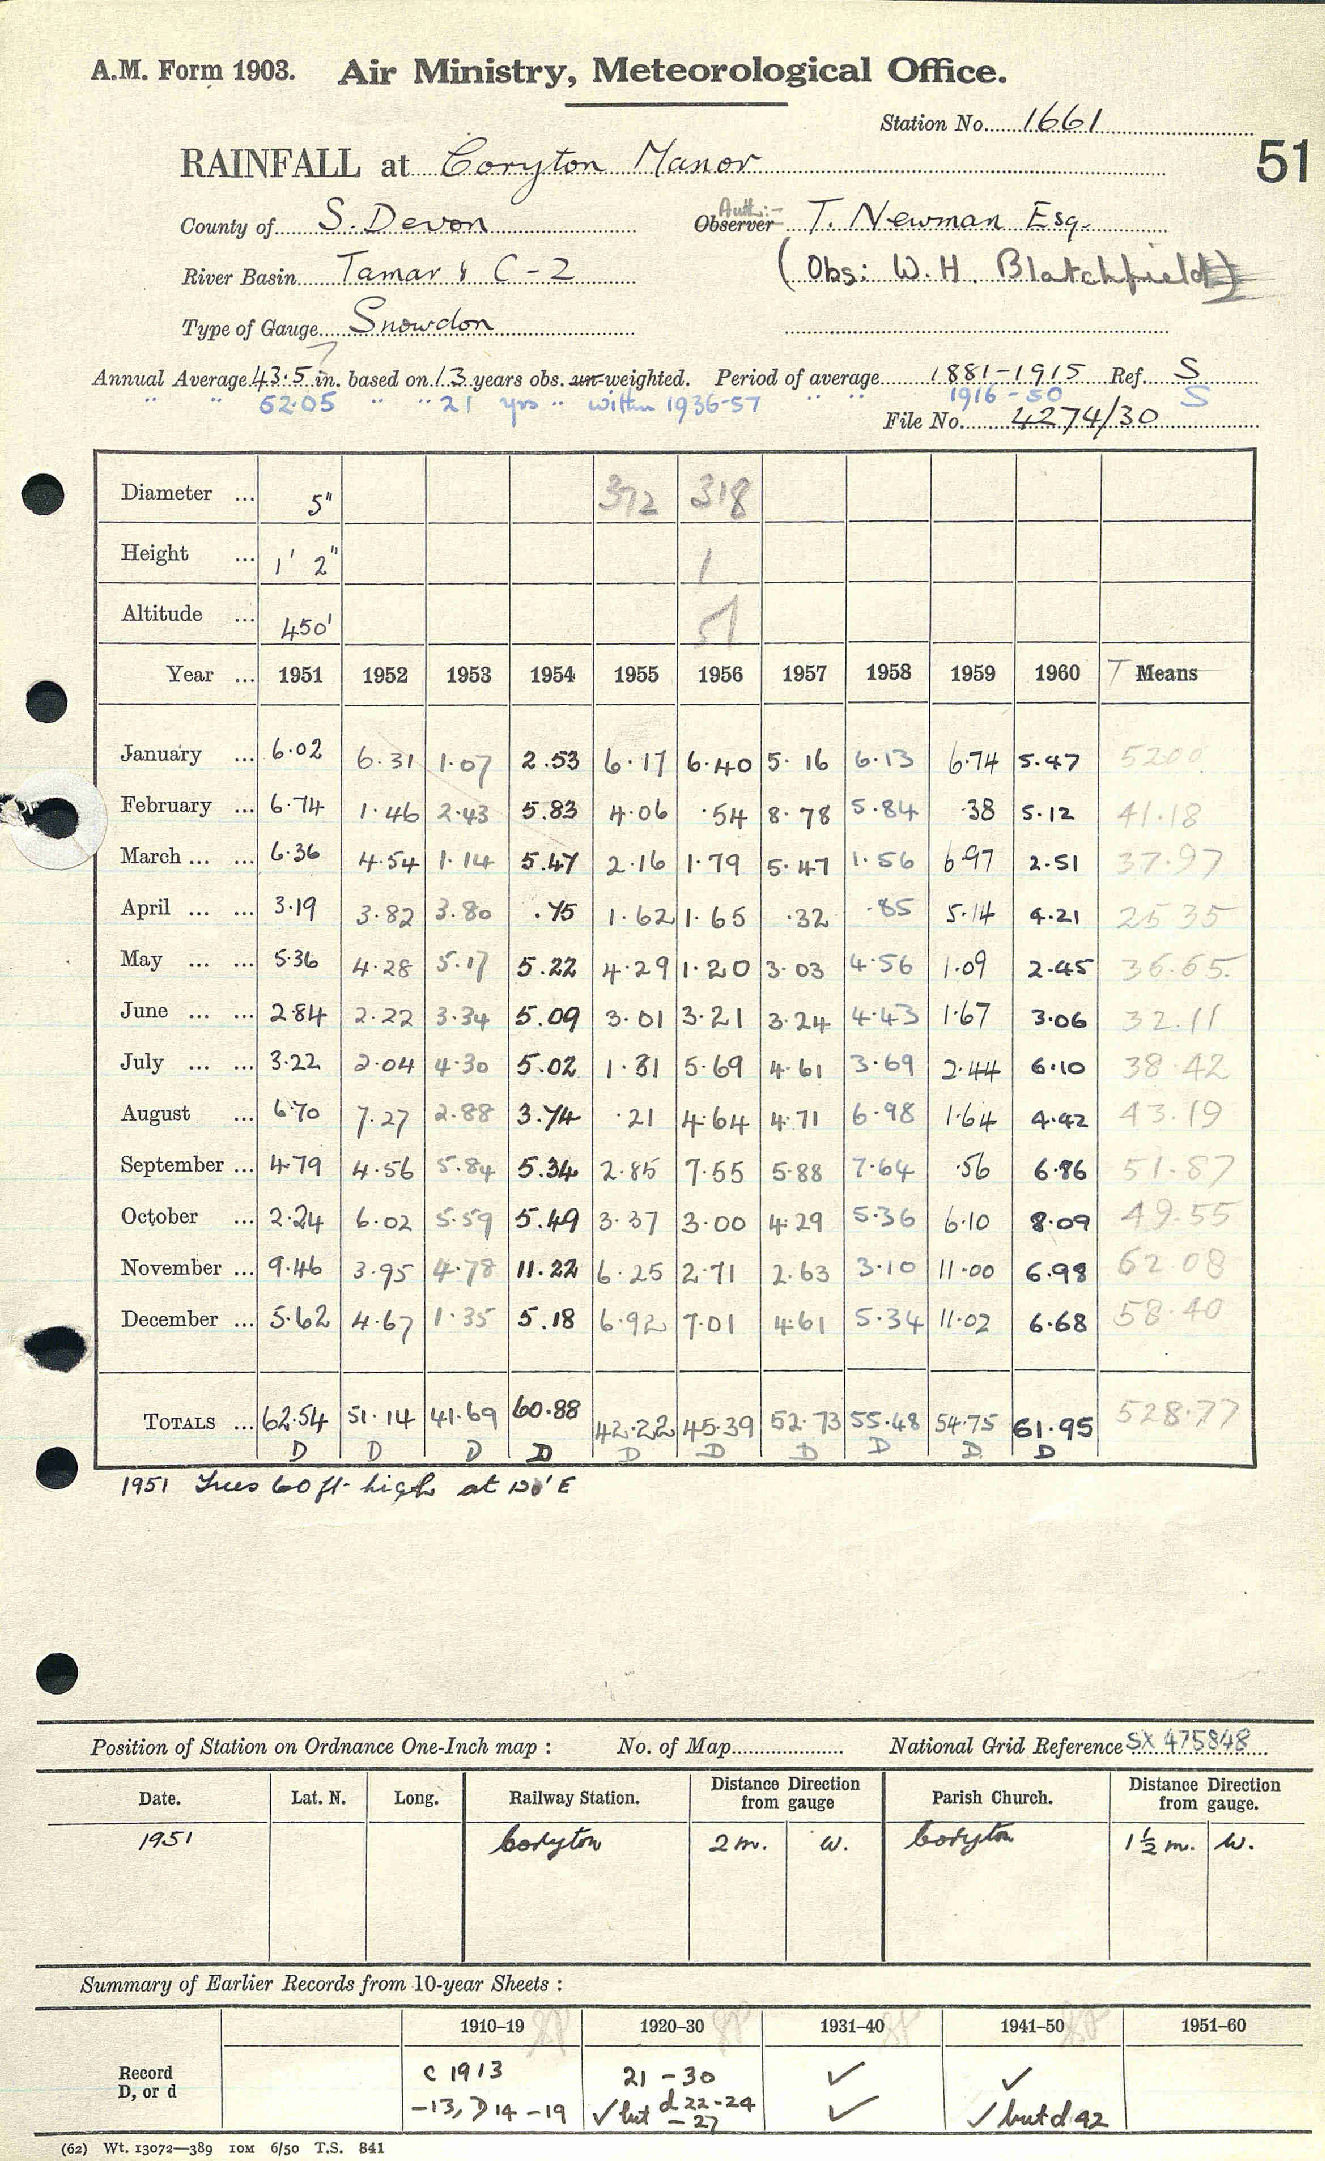 A.M. Form 1903. Air Ministry, Meteorological Office.
Station No. 1661
51
RAINFALL at Coryton Manor
County of S. Devon Auth:- Observer T. Newman Esq.
River Basin Tamar & C-2 (Obs: W.H. Blatchfield)
Type of Gauge Snowdon
Annual Average 43.5 in. based on 13 years obs. un-weighted. Period of average 1881-1915 Ref. S
" " 52.05 " " 21 yrs " within 1936-57 " " 1916-50 S
File No. 4274/30
Diameter ... 5" 372 318
Height ... 1' 2" 1
Altitude ... 450' 51
Year ... 1951 1952 1953 1954 1955 1956 1957 1958 1959 1960 T Means
January ... 6.02 6.31 1.07 2.53 6.17 6.40 5.16 6.13 6.74 5.47 52.00
February ... 6.74 1.46 2.43 5.83 4.06 .54 8.78 5.84 .38 5.12 41.18
March ... ... 6.36 4.54 1.14 5.47 2.16 1.79 5.47 1.56 6.97 2.51 37.97
April ... ... 3.19 3.82 3.80 .75 1.62 1.65 .32 .85 5.14 4.21 25.35
May ... ... 5.36 4.28 5.17 5.22 4.29 1.20 3.03 4.56 1.09 2.45 36.65
June ... ... 2.84 2.22 3.34 5.09 3.01 3.21 3.24 4.43 1.67 3.06 32.11
July ... ... 3.22 2.04 4.30 5.02 1.31 5.69 4.61 3.69 2.44 6.10 38.42
August ... 6.70 7.27 2.88 3.74 .21 4.64 4.71 6.98 1.64 4.42 43.19
September ... 4.79 4.56 5.84 5.34 2.85 7.55 5.88 7.64 .56 6.86 51.87
October ... 2.24 6.02 5.59 5.49 3.37 3.00 4.29 5.36 6.10 8.09 49.55
November ... 9.46 3.95 4.78 11.22 6.25 2.71 2.63 3.10 11.00 6.98 62.08
December ... 5.62 4.67 1.35 5.18 6.92 7.01 4.61 5.34 11.02 6.68 58.40
TOTALS ... 62.54 51.14 41.69 60.88 42.22 45.39 52.73 55.48 54.75 61.95 528.77
D D D D D D D D D D
1951 Trees 60 ft. high at 120' E
Position of Station on Ordnance One-Inch map : No. of Map National Grid Reference SX 475848
Date. Lat. N. Long. Railway Station. Distance Direction from gauge Parish Church. Distance Direction from gauge.
1951 Coryton 2 m. W. Coryton 1½ m. W.
Summary of Earlier Records from 10-year Sheets :
1910-19 1920-30 1931-40 1941-50 1951-60
Record D, or d
c 1913 21-30 ✓ ✓
-13, D 14-19 ✓ but d 22-24 -27 ✓ ✓ but d 42
(62) Wt. 13072—389 10M 6/50 T.S. 841